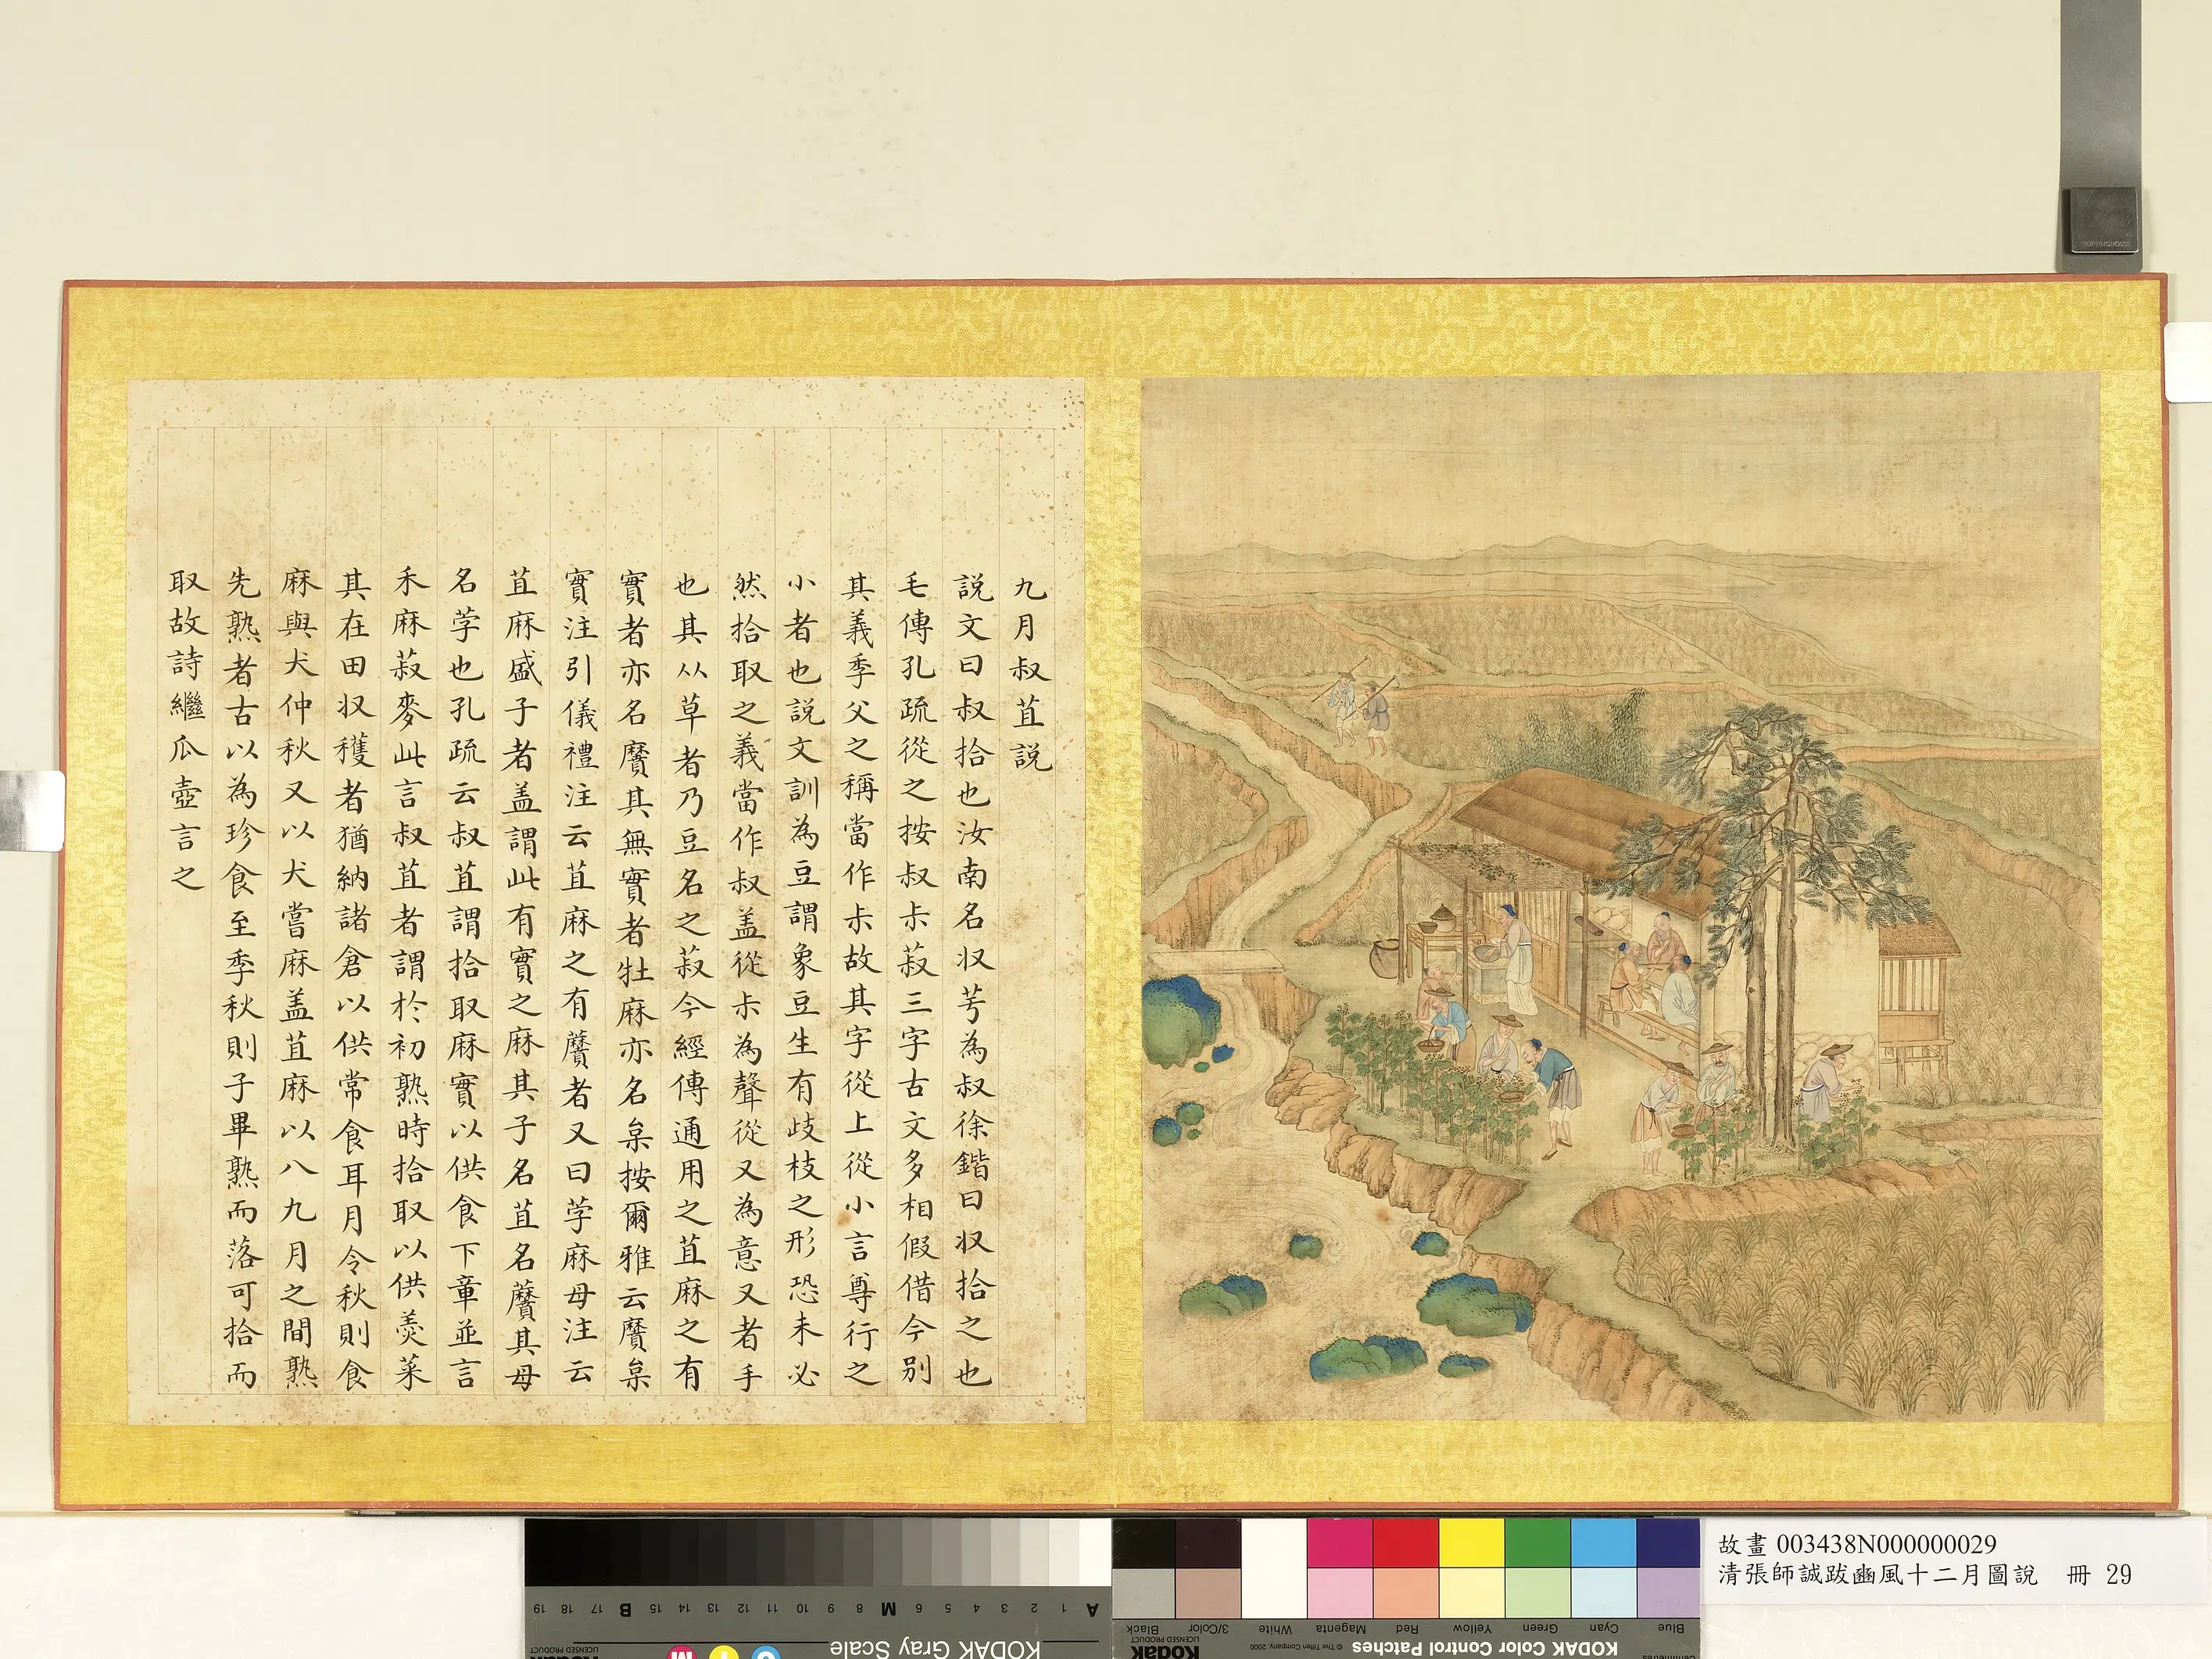 九月叔苴説
説文曰叔拾也汝南名収芌為叔徐鍇曰収拾之也
毛傳孔疏從之按叔尗菽三字古文多相假借今別
其義季父之稱當作尗故其字從上從小言尊行之
小者也説文訓為豆謂象豆生有歧枝之形恐未必
然拾取之義當作叔盖從尗為聲從又為意又者手
也其从草者乃豆名之菽今經傳通用之苴麻之有
實者亦名黂其無實者牡麻亦名枲按爾雅云黂枲
實注引儀禮注云苴麻之有蕡者又曰荸麻母注云
苴麻盛子者盖謂此有實之麻其子名苴名黂其母
名荸也孔疏云叔苴謂拾取麻實以供食下章並言
禾麻菽麥此言叔苴者謂於初熟時拾取以供羮菜
其在田収穫者猶納諸倉以供常食耳月令秋則食
麻與犬仲秋又以犬嘗麻盖苴麻以八九月之間熟
先熟者古以為珍食至季秋則子畢熟而落可拾而
取故詩繼瓜壺言之
故畫 003438N000000029
清張師誠跋豳風十二月圖說 冊 29
A 1 2 3 4 5 6 M 8 9 10 11 12 13 14 15 B 17 18 19
KODAK Gray Scale
M Y C
Kodak
LICENSED PRODUCT
KODAK Color Control Patches
© The Tiffen Company, 2000
Blue Cyan Green Yellow Red Magenta White 3/Color Black
Kodak
LICENSED PRODUCT
Centimetres